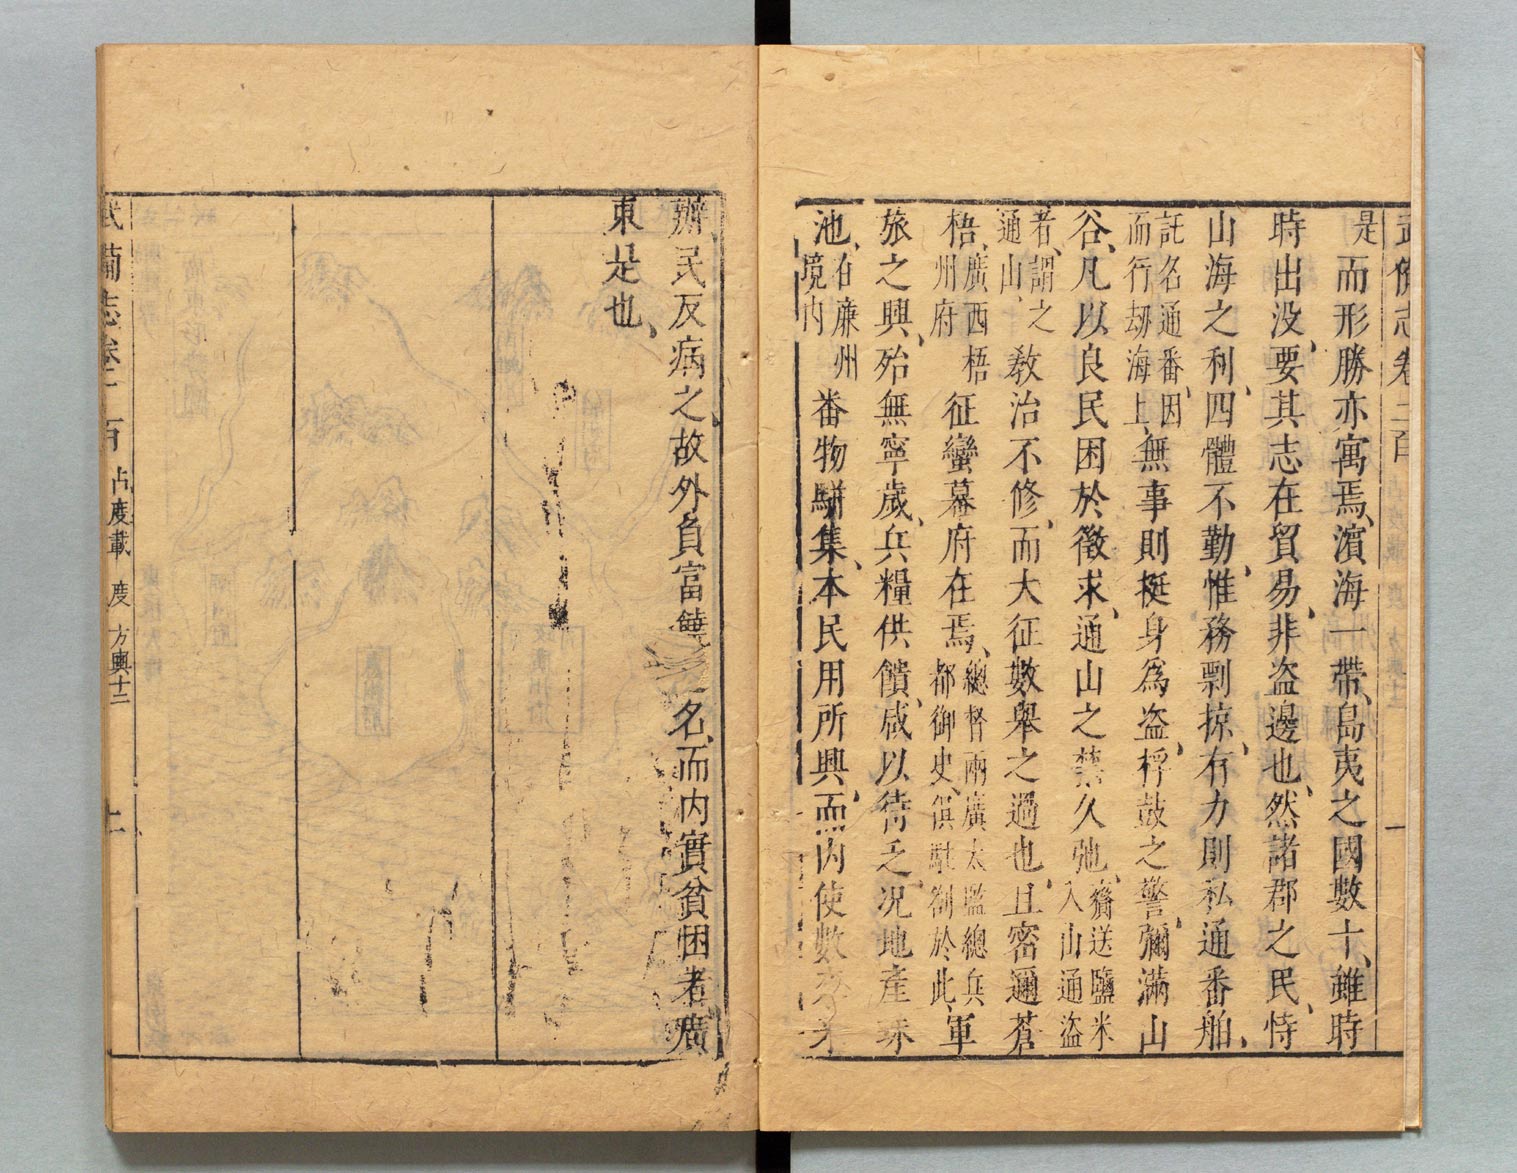 武備志卷二百
一
是而形勝亦寓焉、濱海一帶、島夷之國數十、雖時
時出没、要其志在貿易、非盗邊也、然諸郡之民、恃
山海之利、四體不勤、惟務剽掠、有力則私通番舶、
託名通番、因
而行劫海上、
無事則挺身爲盗、桴鼓之警、彌滿山
谷、凡以良民困於徵求、通山之禁久弛、
齎送鹽米
入山通盗
者、謂之
通山、
敎治不修、而大征數舉之過也、且密邇蒼
梧、
廣西梧
州府
征蠻幕府在焉、
總督兩廣太監總兵
都御史、俱駐劄於此、
軍
旅之興、殆無寧歲、兵糧供饋、咸以待乏、况地產珠
池、
在廉州
境内
番物騈集、本民用所興、而内使數來
辦民反病之、故外負富饒之名、而内實貧困者、廣
東是也、
武備志卷二百
占度載
度
方輿十二